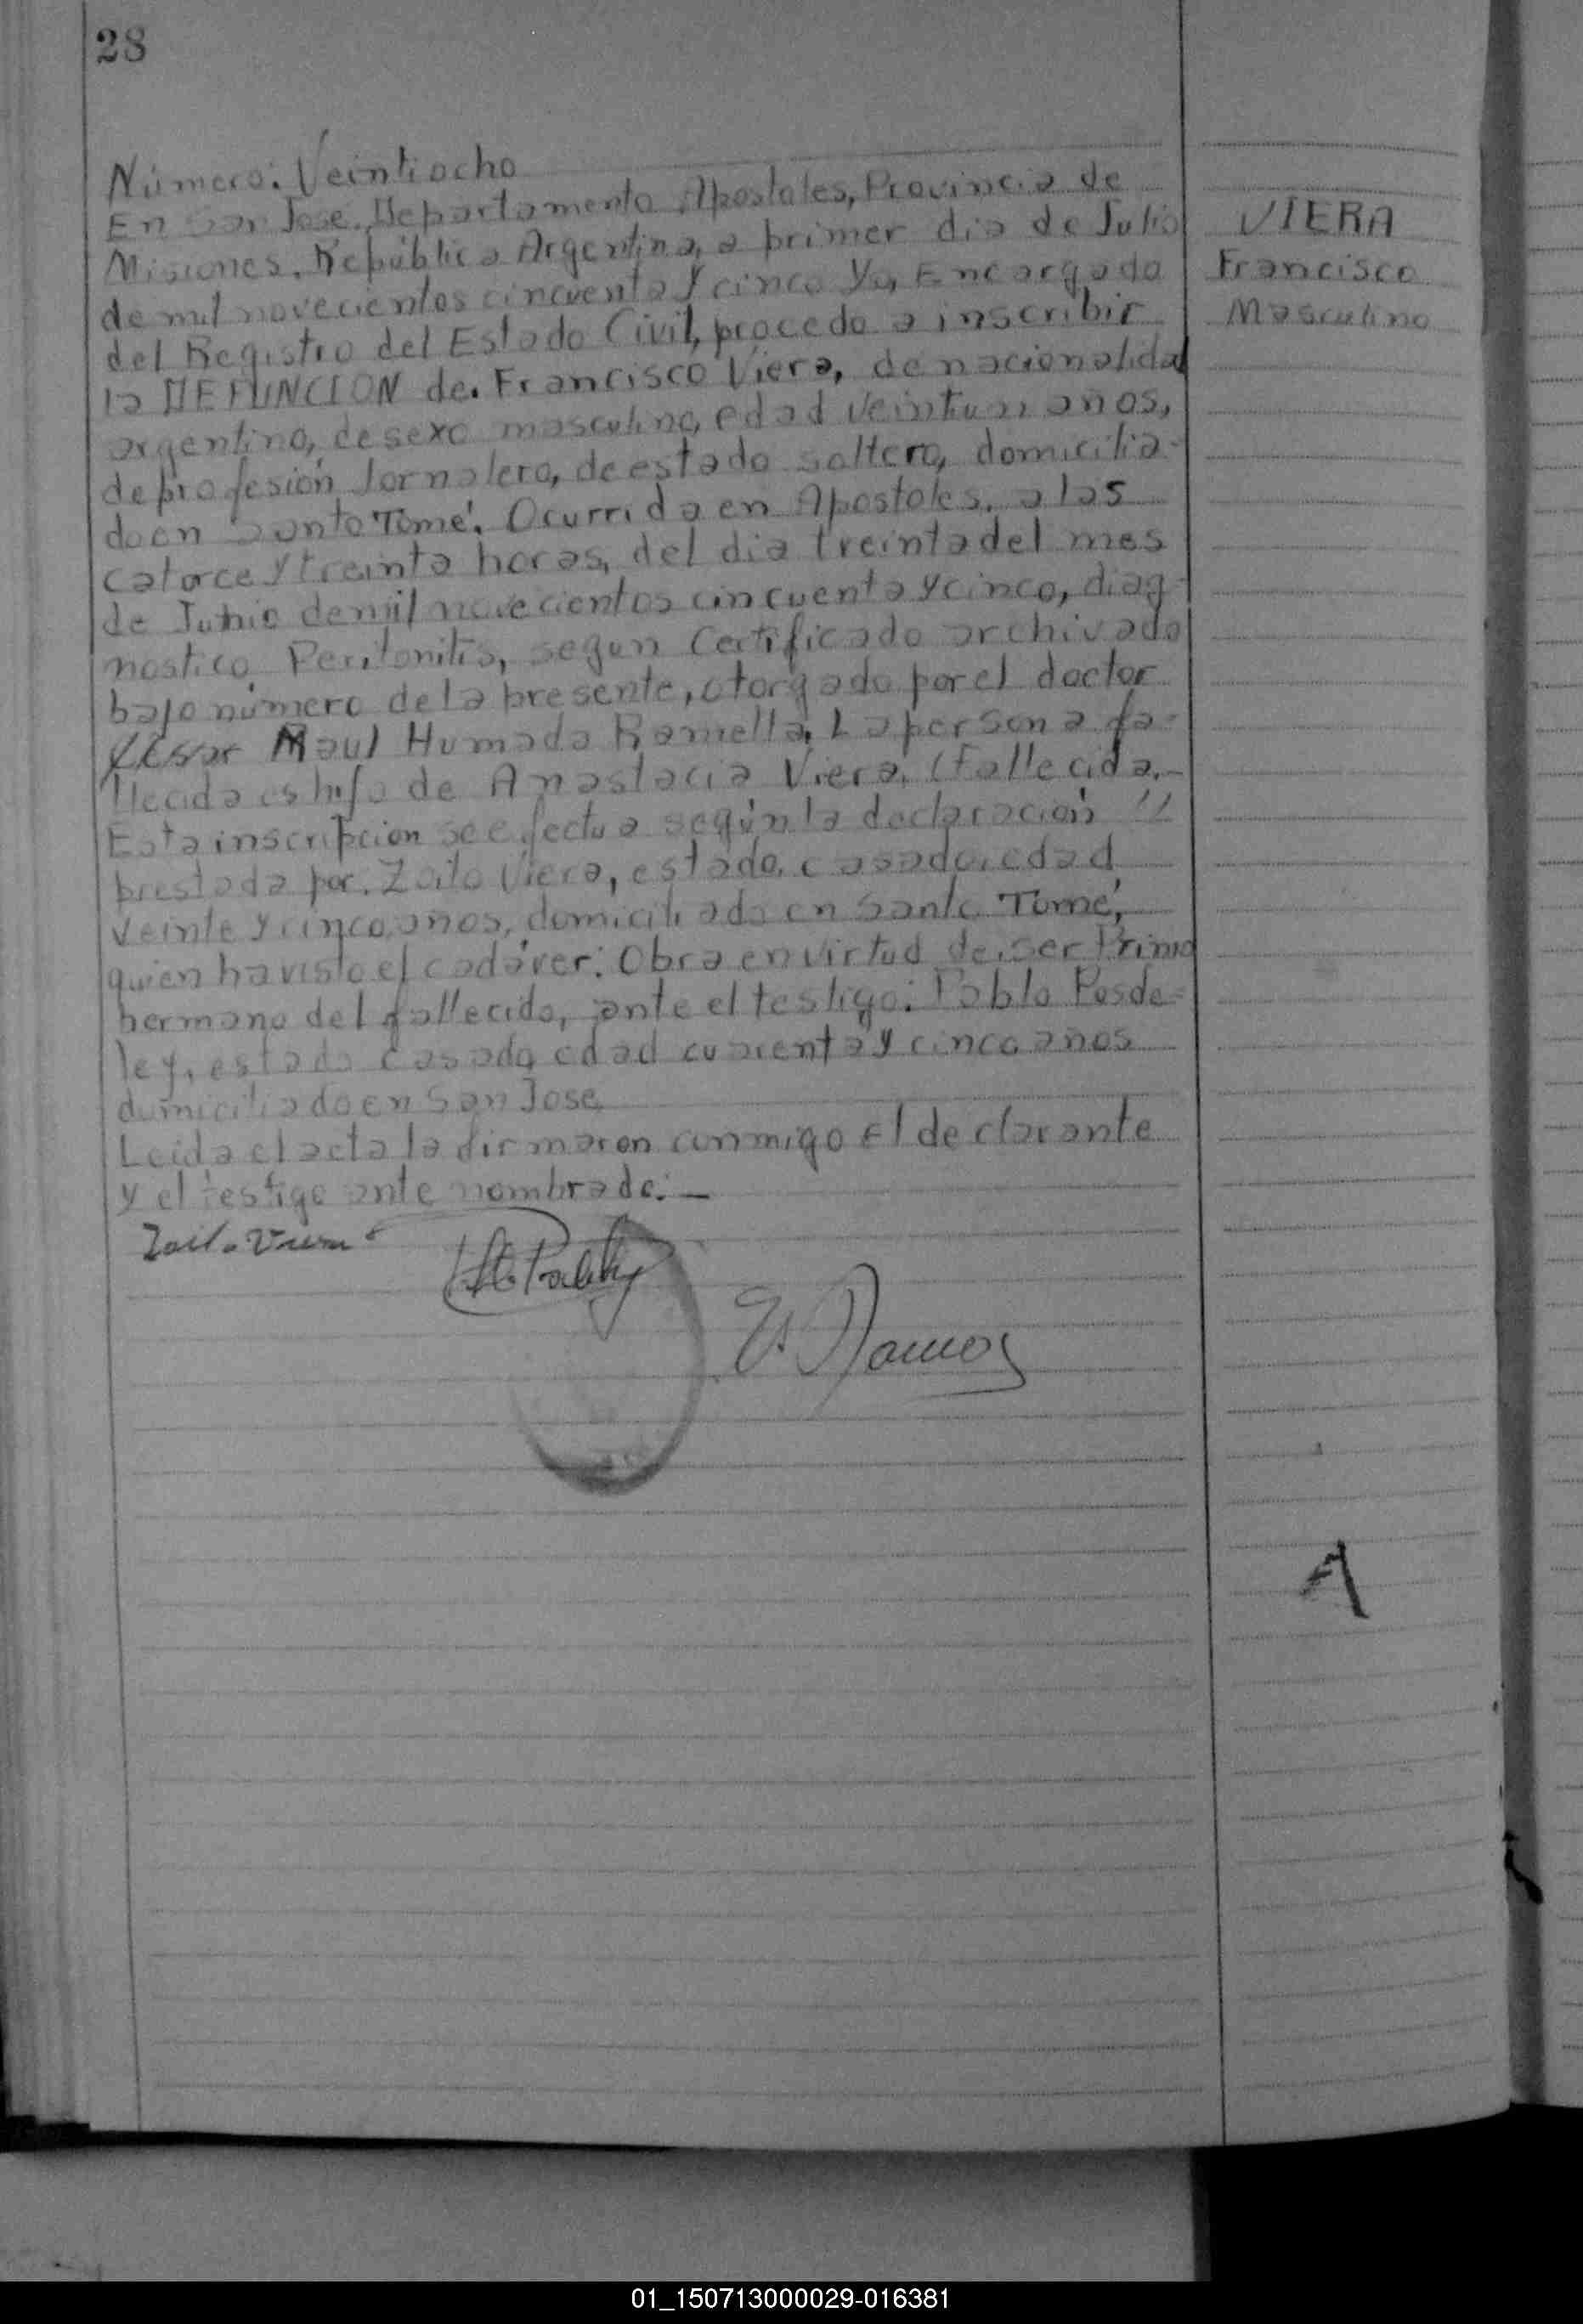 28
Número: Veintiocho
En San José, Departamento Apostoles, Provincia de
Misiones, República Argentina, a primer dia de Julio
de mil novecientos cincuenta y cinco Yo, Encargado
del Registro del Estado Civil, procedo a inscribir
la DEFUNCION de. Francisco Viera, de nacionalidad
argentino, de sexo masculino, edad veintiun años,
de profesión Jornalero, de estado soltero, domicilia-
do en Santo Tomé. Ocurrida en Apostoles, a las
catorce y treinta horas, del dia treinta del mes
de Junio de mil novecientos cincuenta y cinco, diag-
nostico Peritonitis, segun Certificado archivado
bajo número de la presente, otorgado por el doctor
Raul Humada Ramella. La persona fa-
llecida es hijo de Anastacia Viera. (Fallecida.-
Esta inscripcion se efectua según la declaración
prestada por. Zoilo Viera, estado, casado, edad
veinte y cinco, años, domiciliado en Santo Tomé,
quien ha visto el cadáver: Obra en virtud de, ser Primo
hermano del fallecido, ante el testigo: Pablo Posde-
ley, estado casado, edad cuarenta y cinco años
domiciliado en San Jose
Leida el acta la firmaron conmigo El declarante
y el testigo ante nombrado:—
Zoilo Viera
Ramos
VIERA
Francisco
Masculino
A
01_150713000029-016381